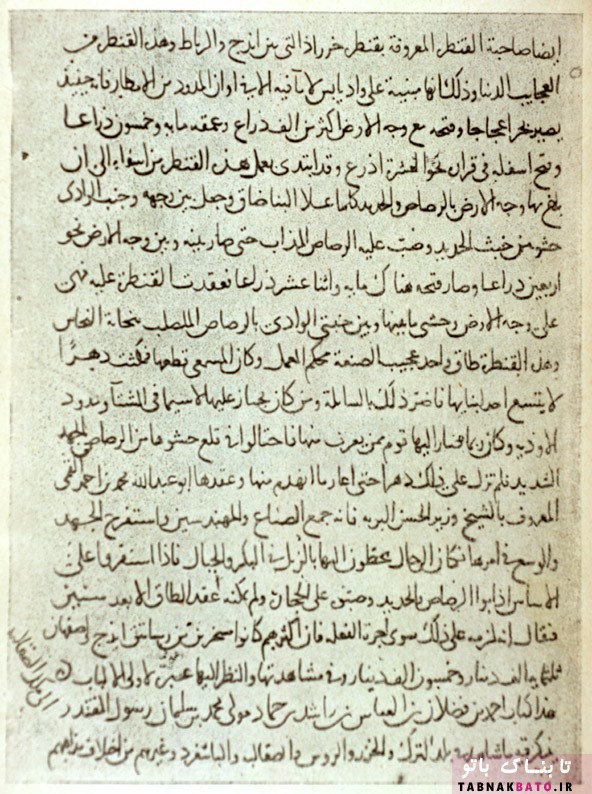 ايضا صاحبة القنطرة المعروفة بقنطرة خرزاد التى بين ايذج والرباط وهذه القنطرة من
العجايب الدنيا وذلك انها مبنية على واد يابس لا ماء فيه الا فى اوان المدود من الامطار فانه حينئذ
يصير بحرا عجاجا وفتحه مع وجه الارض اكثر من الف ذراع وعمقه مايه وخمسون ذراعا
وفتح اسفله فى قراره نحو العشرة اذرع وقد ابتدى بعمل هذه القنطرة من اسفله الى ان
بلغ بها وجه الارض بالرصاص والحديد كلما علا البنا ضاق وجعل بين وجهه وجنب الوادى
حشو من خبث الحديد وصب عليه الرصاص المذاب حتى صار بينه وبين وجه الارض نحو
اربعين ذراعا وصار فتحه هناك مايه واثنا عشر ذراعا فعقدت القنطرة عليه فهى
على وجه الارض وحشى ما بينها وبين جنبتى الوادى بالرصاص المصلب بنحاتة النحاس
وهذه القنطرة طاق واحد عجيب الصنعة محكم العمل وكان المسمعى قطعها فمكثت دهرا
لا يتسع احد لبنايها فاضر ذلك بالسابلة ومن كان يجتاز عليها لا سيما فى الشتآ ومدود
الاوديه وكان ربما صار اليها قوم ممن يعرب منها فاحتالوا فى قلع حشوها من الرصاص بالجهد
الشديد فلم تزل على ذلك دهرا حتى اعاد ما انهدم منها وعقدها ابو عبد الله محمد بن احمد القمى
المعروف بالشيخ وزير الحسن البويه فانه جمع الصناع والمهندسين واستفرغ الجهد
والوسع فى امرها فكان الرجال يحطون اليها بالزبل فى البكر والحبال فاذا استقروا على
الاساس اذابوا الرصاص والحديد وصبوه على الحجارة ولم يمكنه عقد الطاق الا بعد سنتين
فيقال انه لزمه على ذلك سوى اجرة الفعلة فان اكثرهم كانوا مسخرين من رساتيق ايذج واصفهان
ثلثمايه الف دينار وخمسون الف دينار وفى مشاهدتها والنظر اليها عبرة لاولى الالباب
هذا كتاب احمد بن فضلان بن العباس بن راشد بن حماد مولى محمد بن سلمان رسول المقتدر
الى ملك الصقالبه
يذكر فيه ما شاهد فى بلد الترك والخزر والروس والصقالبه والباشغرد وغيرهم من اختلاف مذاهبهم
تا بناک باتو
TABNAKBATO.IR